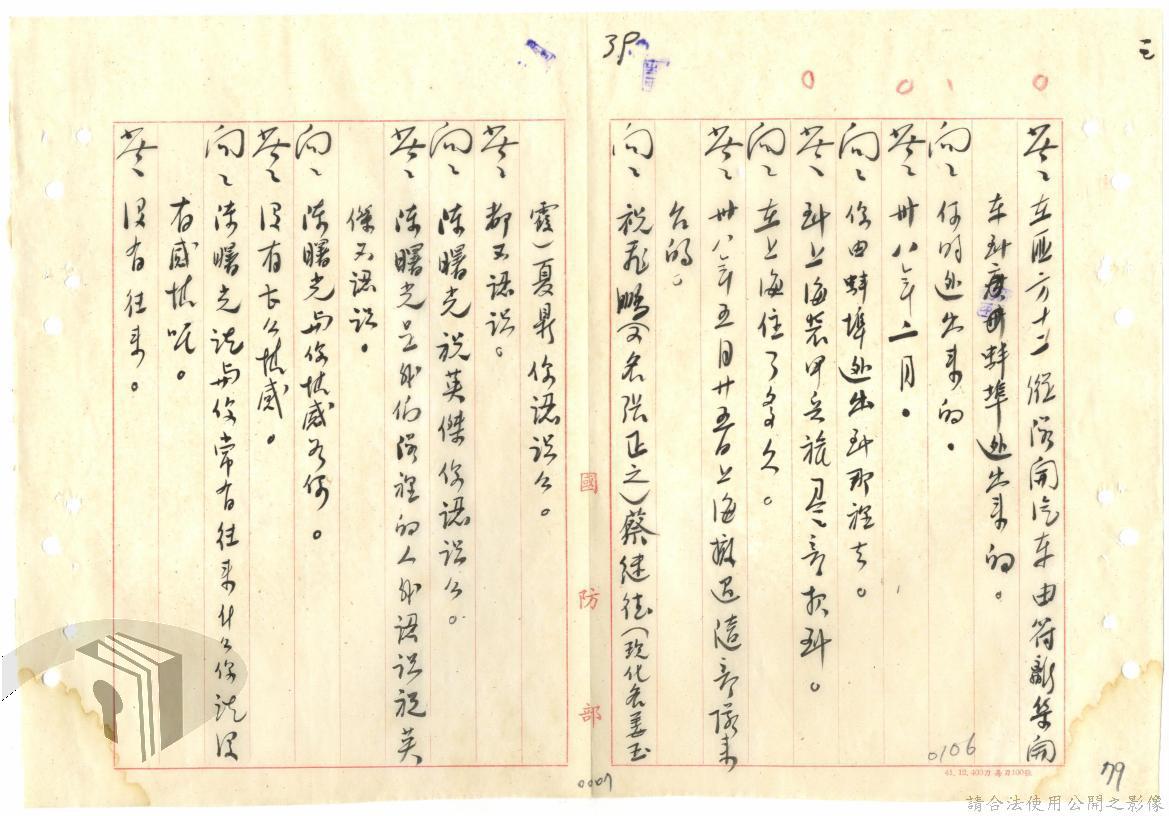 三
39
答：在匪方十二縱隊開汽車由符離集開
車到蚌埠逃出來的。
問：何時逃出來的。
答：卅八年二月。
問：你由蚌埠逃出到那裡去。
答：到上海裝甲兵旅司令部報到。
問：在上海住了多久。
答：卅八年五月廿五日上海撤退隨部隊來
台的。
問：祝飛鵬（又名張正之）蔡繼德（現化名姜玉
霞）夏鼎你認識么。
答：都不認識。
問：陳曙光祝英傑你認識么。
答：陳曙光是我們隊裡的人我認識祝英
傑不認識。
問：陳曙光與你情感如何。
答：沒有什么情感。
問：陳曙光說與你常有往來什么你說沒
有感情呢。
答：沒有往來。
國防部
0106
41.12.400刀 每刀100張
0007
79
請合法使用公開之影像